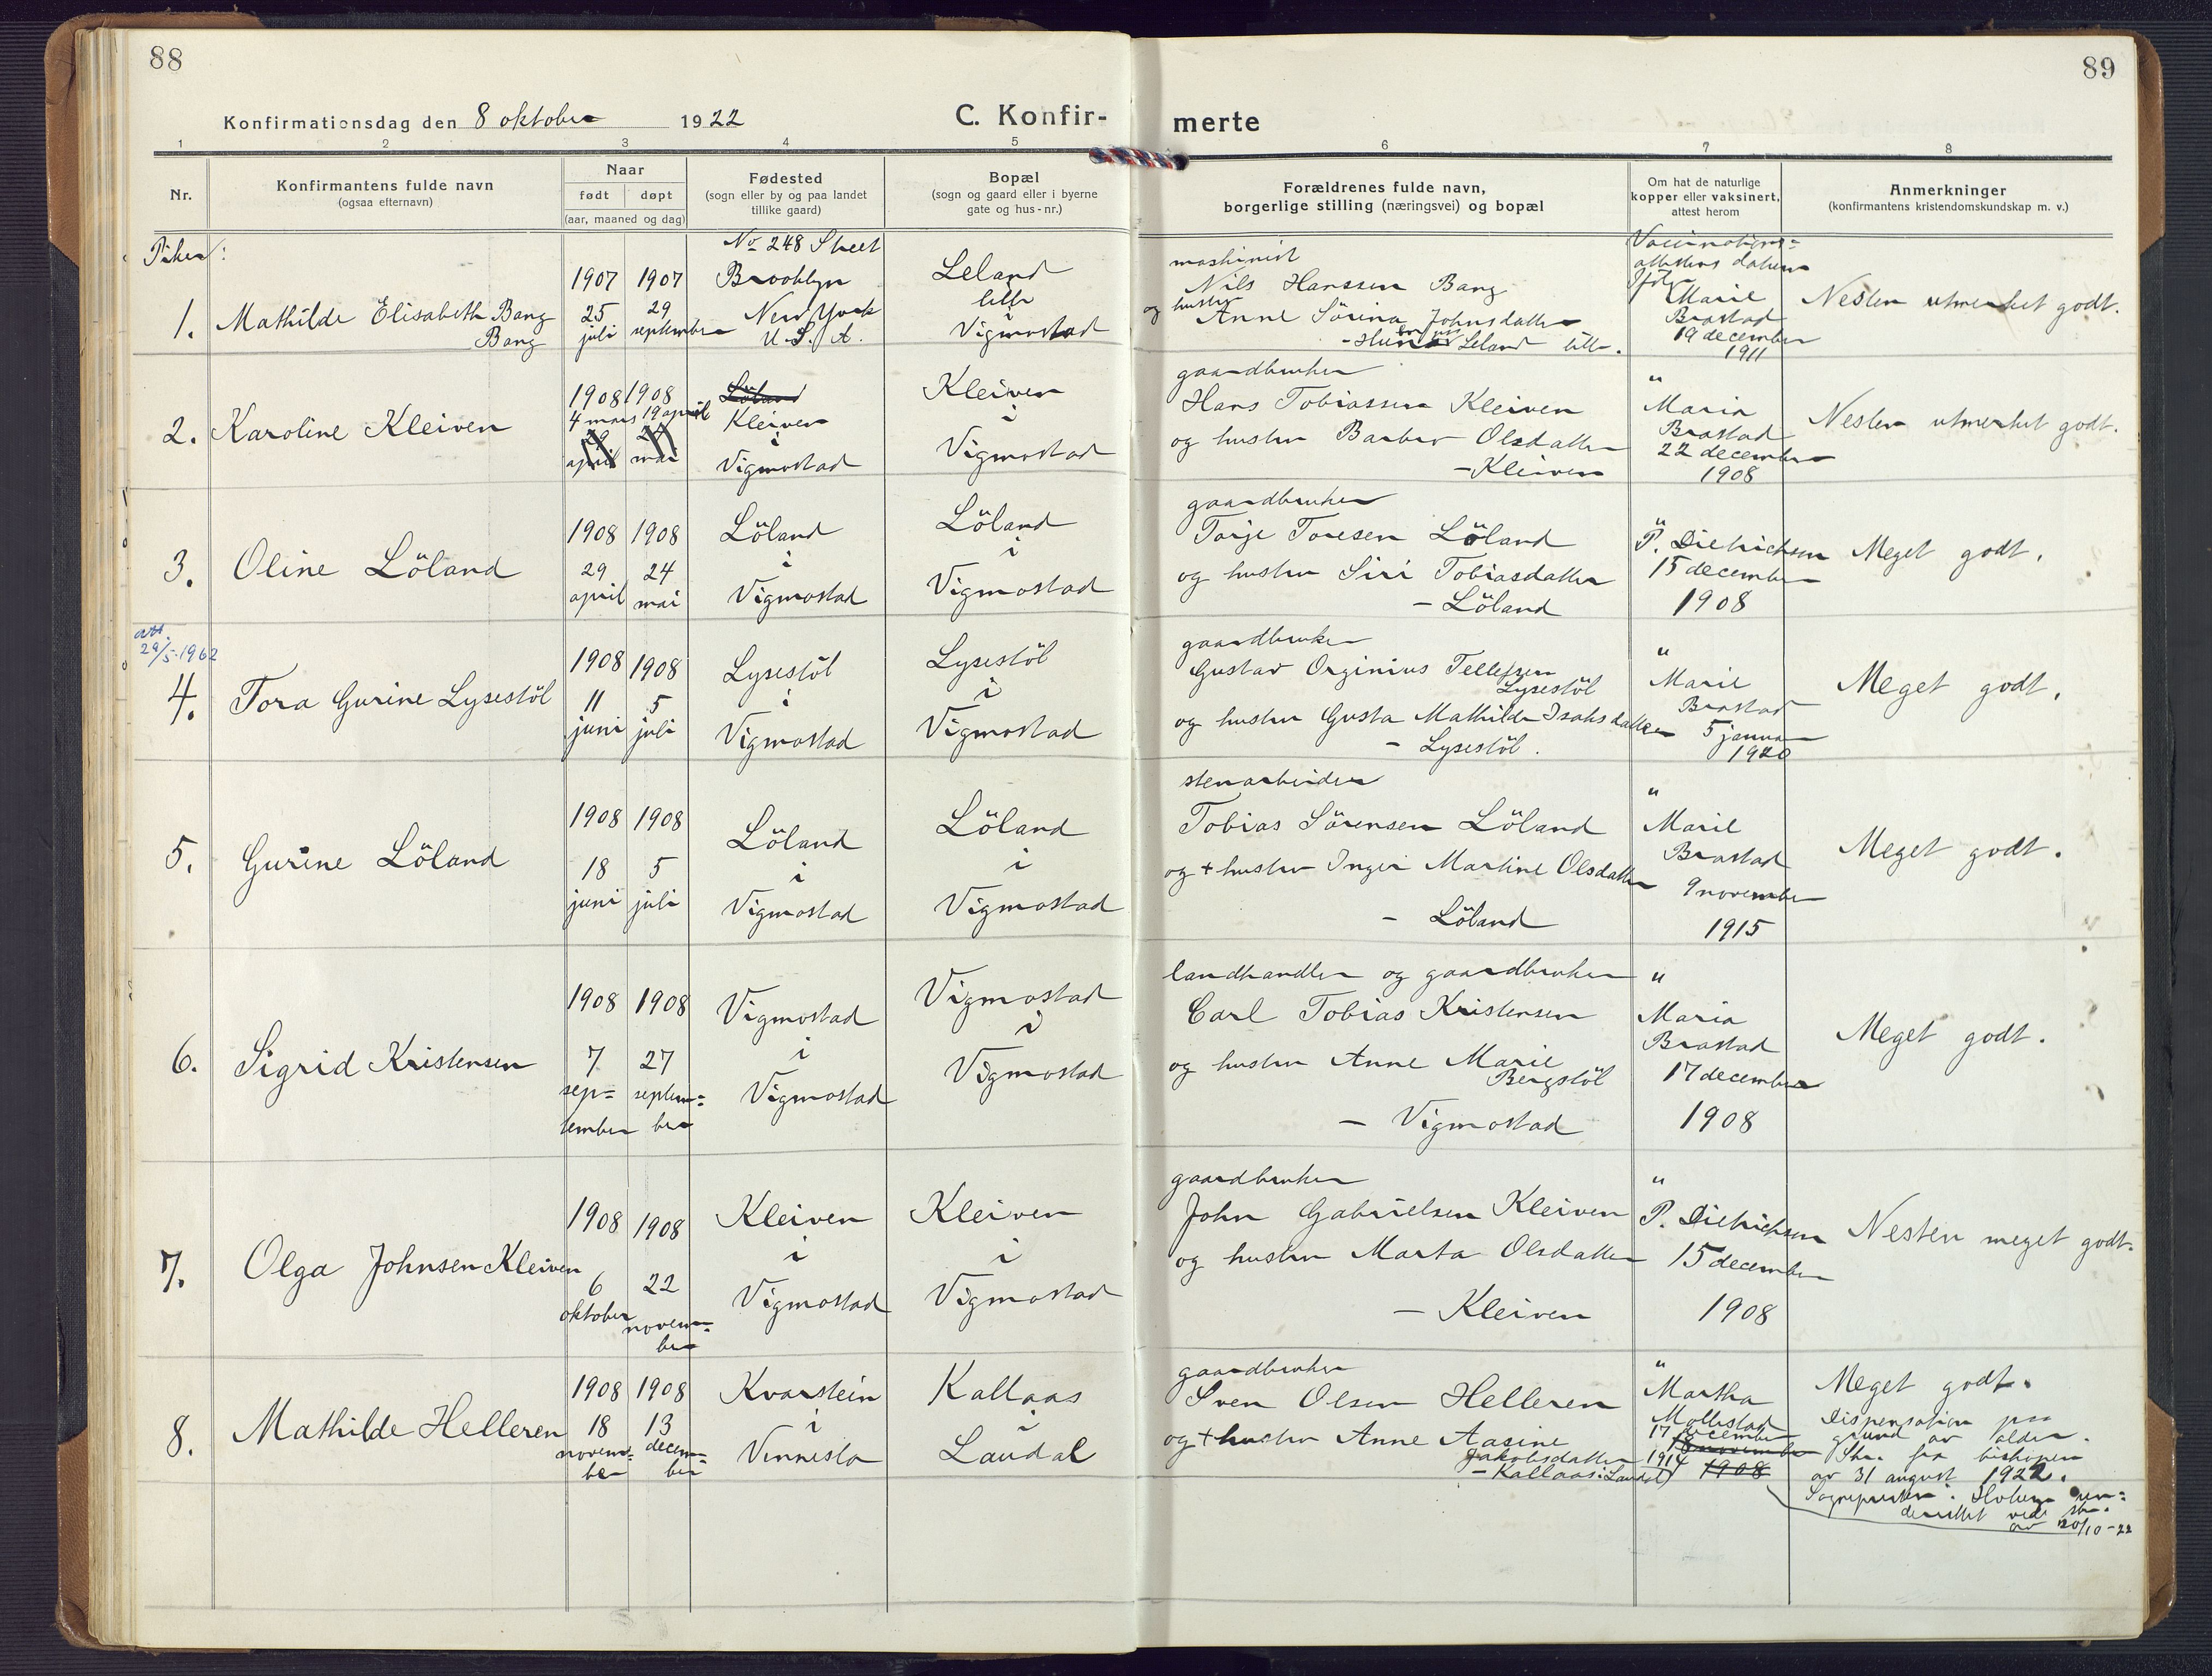 88
89
Konfirmationsdag den 8 oktober 1922
C. Konfir-
merte
1 2 3 4 5 6 7 8
Nr.
Konfirmantens fulde navn
(ogsaa efternavn)
Naar
født døpt
(aar, maaned og dag)
Fødested
(sogn eller by og paa landet
tillike gaard)
Bopæl
(sogn og gaard eller i byerne
gate og hus-nr.)
Forældrenes fulde navn,
borgerlige stilling (næringsvei) og bopæl
Om hat de naturlige
kopper eller vaksinert,
attest herom
Anmerkninger
(konfirmantens kristendomskundskap m. v.)
Piker:
1.
Mathilde Elisabeth Bang
Bang
1907
25
juli
1907
29
september
No 248 Street
Brooklyn
New York
U. S. A.
Leland
lille
i
Vigmostad
maskinist
Nils Hanssen Bang
og hustru
Anne Sörina Johnsdatter
Leland lille.
Vaccinations=
attestens datum
Marie
Brastad
19 december
1911
Nesten utmerket godt.
2.
Karoline Kleiven
1908
4 mars
april
1908
19 april
mai
Löland
Kleiven
i
Vigmostad
Kleiven
i
Vigmostad
gaardbruker
Hans Tobiassen Kleiven
og hustru Barbro Olsdatter
- Kleiven
"
Maria
Brastad
22 december
1908
Nesten utmerket godt.
3.
Oline Löland
1908
29
april
1908
24
mai
Löland
i
Vigmostad
Löland
i
Vigmostad
gaardbruker
Torje Toresen Löland
og hustru Siri Tobiasdatter
- Löland
"
P. Dietrichsen
15 december
1908
Meget godt.
att.
29/5-1962
4.
Tora Gurine Lysestöl
1908
11
juni
1908
5
juli
Lysestöl
i
Vigmostad
Lysestöl
i
Vigmostad
gaardbruker
Gustav Orginius Tellefsen
Lysestöl
og hustru Gusta Mathilde Isaksdatter
- Lysestöl.
"
Marie
Brastad
5 januar
1920
Meget godt.
5.
Gurine Löland
1908
18
juni
1908
5
juli
Löland
i
Vigmostad
Löland
i
Vigmostad
stenarbeider
Tobias Sörensen Löland
og + hustru Inger Martine Olsdatter
- Löland
"
Marie
Brastad
9 november
1915
Meget godt.
6.
Sigrid Kristensen
1908
7
sep=
tember
1908
27
septem=
ber
Vigmostad
i
Vigmostad
Vigmostad
i
Vigmostad
landhandler og gaardbruker
Carl Tobias Kristensen
og hustru Anne Marie
Bergstöl
- Vigmostad
"
Maria
Brastad
17 december
1908
Meget godt.
7.
Olga Johnsen Kleiven
1908
6
oktober
1908
22
novem=
ber
Kleiven
i
Vigmostad
Kleiven
i
Vigmostad
gaardbruker
John Gabrielsen Kleiven
og hustru Marta Olsdatter
- Kleiven
"
P. Dietrichsen
15 december
1908
Nesten meget godt.
8.
Mathilde Helleren
1908
18
novem=
ber
1908
13
decem=
ber
Kvarstein
i
Vennesla
Kallaas
i
Laudal
gaardbruker
Sven Olsen Helleren
og + hustru Anne Aasine
Jakobsdatter
- Kallaas i Laudal)
"
Martha
Mollestad
17 december
1914
1908
Meget godt.
Dispensation paa
grund av alder.
Skr. fra biskopen
av 31 august 1922.
Sognepresten i Holum un=
derrettet ved skr.
av 20/10-22